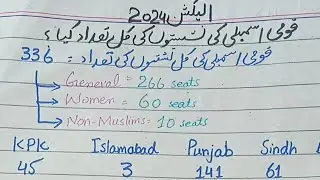 الیکشن 2024
قومی اسمبلی کی نشستوں کی کل تعداد کیا ؟
قومی اسمبلی کی کل نشستوں کی تعداد : 336
General = 266 seats
Women = 60 seats
Non-Muslims = 10 seats
KPK Islamabad Punjab Sindh
45 3 141 61